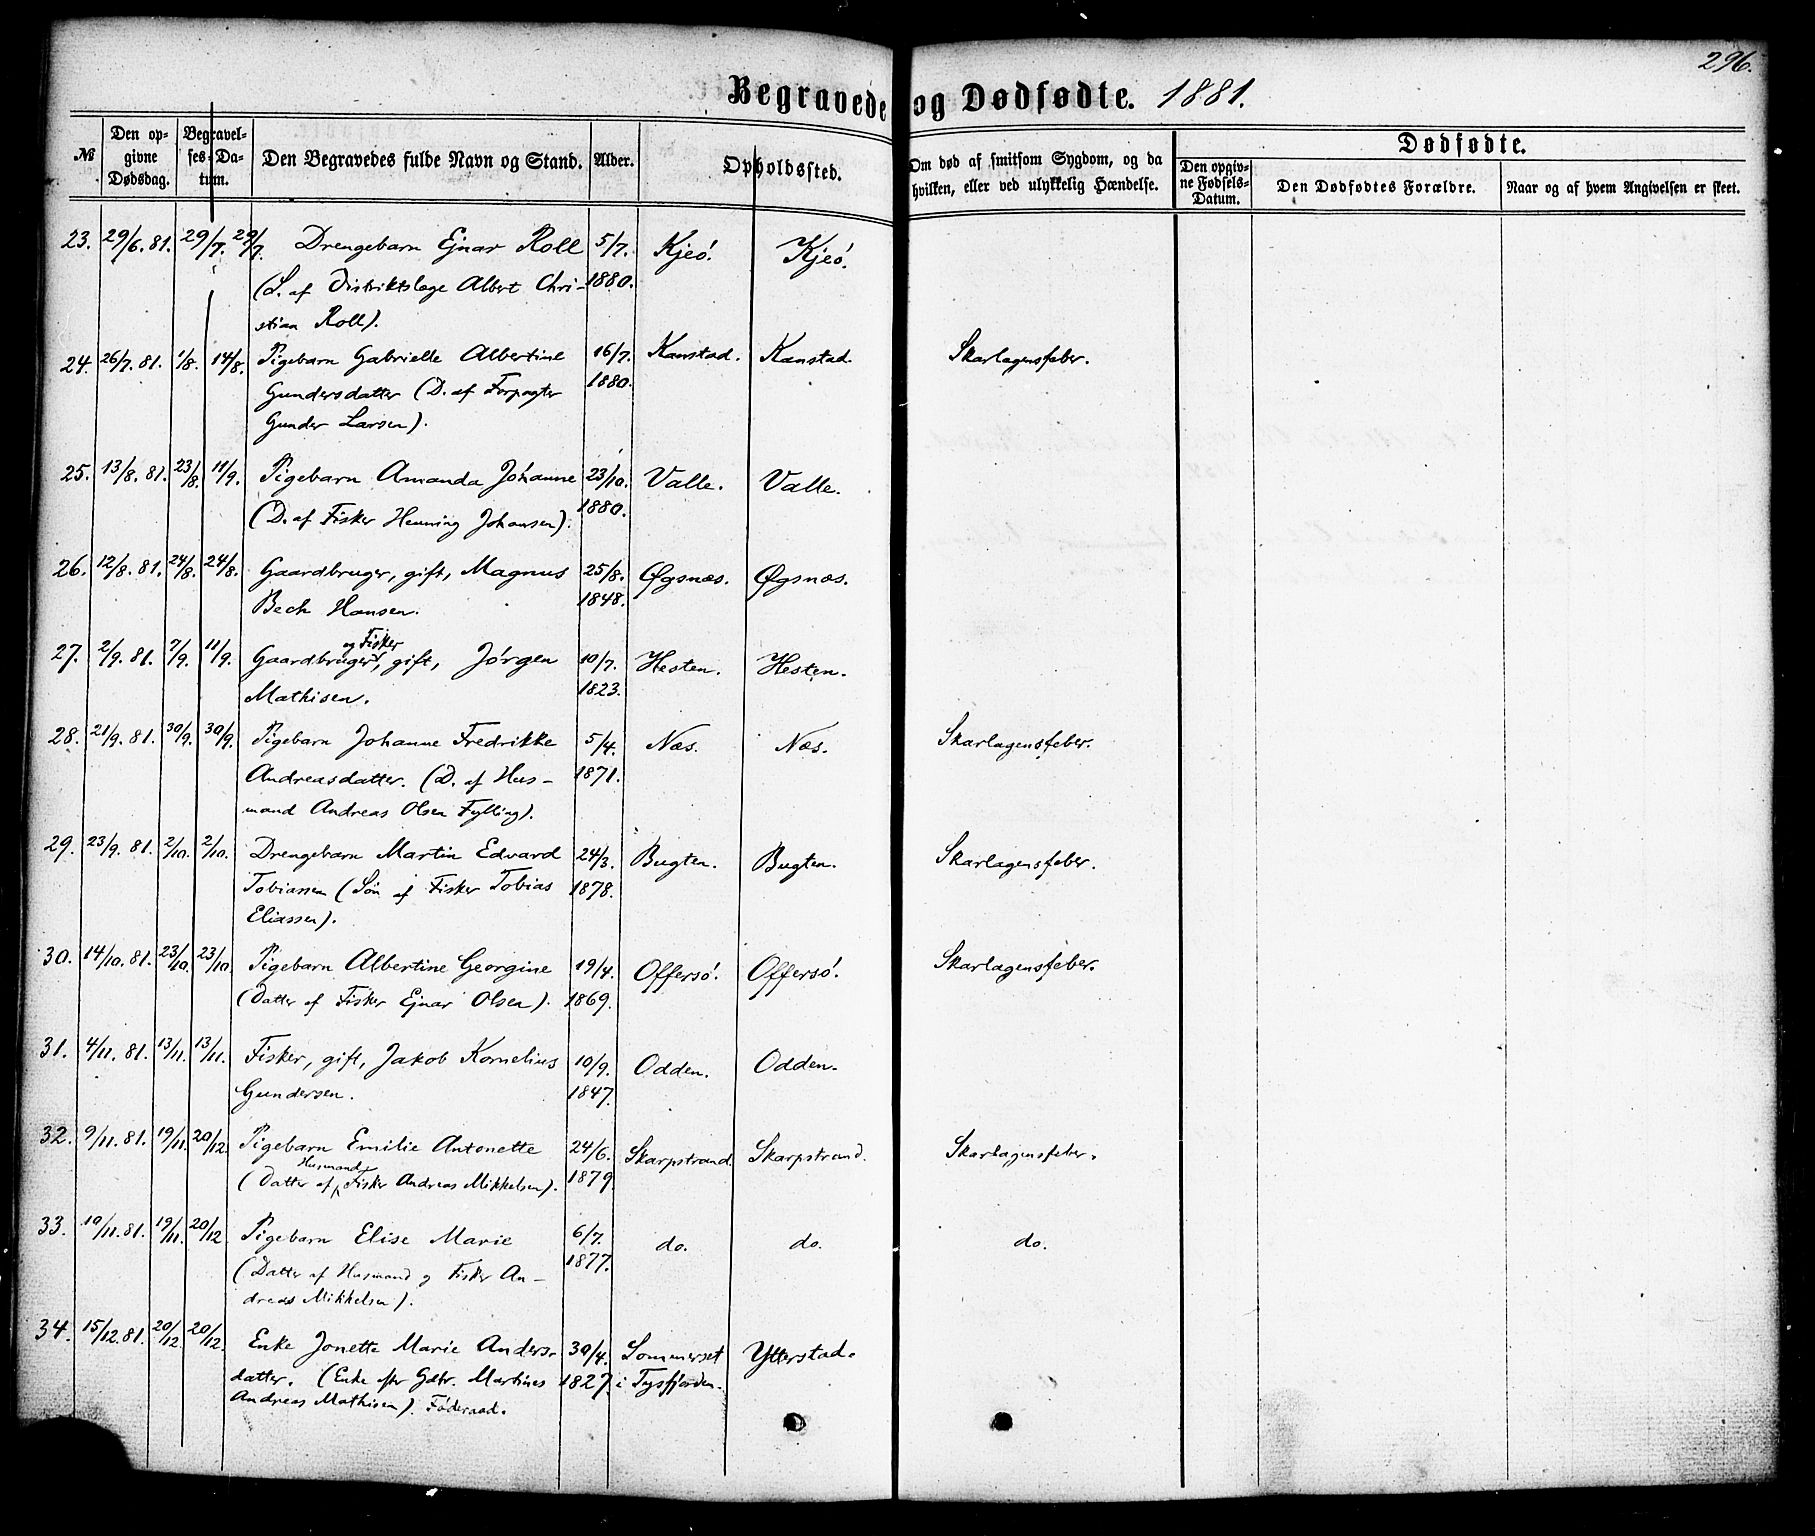 296.
Begravede og Dødfødte. 1881.
№
Den opgivne Dødsdag.
Begravelses-Datum.
Den Begravedes fulde Navn og Stand.
Alder.
Opholdssted.
Om død af smitsom Sygdom, og da hvilken, eller ved ulykkelig Hændelse.
Dødfødte.
Den opgivne Fødsels-Datum.
Den Dødfødtes Forældre.
Naar og af hvem Angivelsen er skeet.
23. 29/6. 81. 29/7. 29/7. Drengebarn Ejnar Roll 5/7. Kjeö. Kjeö.
(S. af Distriktslæge Albert Chri- 1880.
stian Roll).
24. 26/7. 81. 1/8. 14/8. Pigebarn Gabrielle Albertine 16/7. Kanstad. Kanstad. Skarlagensfeber.
Gundersdatter (D. af Forpagter 1880.
Gunder Larsen).
25. 13/8. 81. 23/8. 11/9. Pigebarn Amanda Johanne 23/10. Valle. Valle.
(D. af Fisker Henning Johansen). 1880.
26. 12/8. 81. 24/8. 24/8. Gaardbruger, gift, Magnus 25/8. Øgsnæs. Øgsnæs.
Beck Hansen. 1848.
og Fisker
27. 2/9. 81. 7/9. 11/9. Gaardbruger, gift, Jörgen 10/7. Hesten. Hesten.
Mathisen. 1823.
28. 21/9. 81. 30/9. 30/9. Pigebarn Johanne Fredrikke 5/4. Næs. Næs. Skarlagensfeber.
Andreasdatter. (D. af Hus- 1871.
mand Andreas Olsen Fylling).
29. 23/9. 81. 2/10. 2/10. Drengebarn Martin Edvard 24/3. Bugten. Bugten. Skarlagensfeber.
Tobiassen (Sön af Fisker Tobias 1878.
Eliassen).
30. 14/10. 81. 23/10. 23/10. Pigebarn Albertine Georgine 19/4. Offersö. Offersö. Skarlagensfeber.
(Datter af Fisker Ejnar Olsen). 1869.
31. 4/11. 81. 13/11. 13/11. Fisker, gift, Jakob Kornelius 10/9. Odden. Odden.
Gundersen. 1847.
32. 9/11. 81. 19/11. 20/12. Pigebarn Emilie Antonette 24/6. Skarpstrand. Skarpstrand. Skarlagensfeber.
Husmand
(Datter af Fisker Andreas Mikkelsen). 1879.
33. 10/11. 81. 19/11. 20/12 Pigebarn Elise Marie 6/7. do. do. do.
(Datter af Husmand og Fisker An- 1877.
dreas Mikkelsen).
34. 15/12. 81. 20/12. 20/12. Enke Jonette Marie Anders- 30/4. Sommerset Ytterstad.
datter. (Enke efter Gdbr. Martines 1827. i Tysfjorden.
Andreas Mathisen). Föderaad.